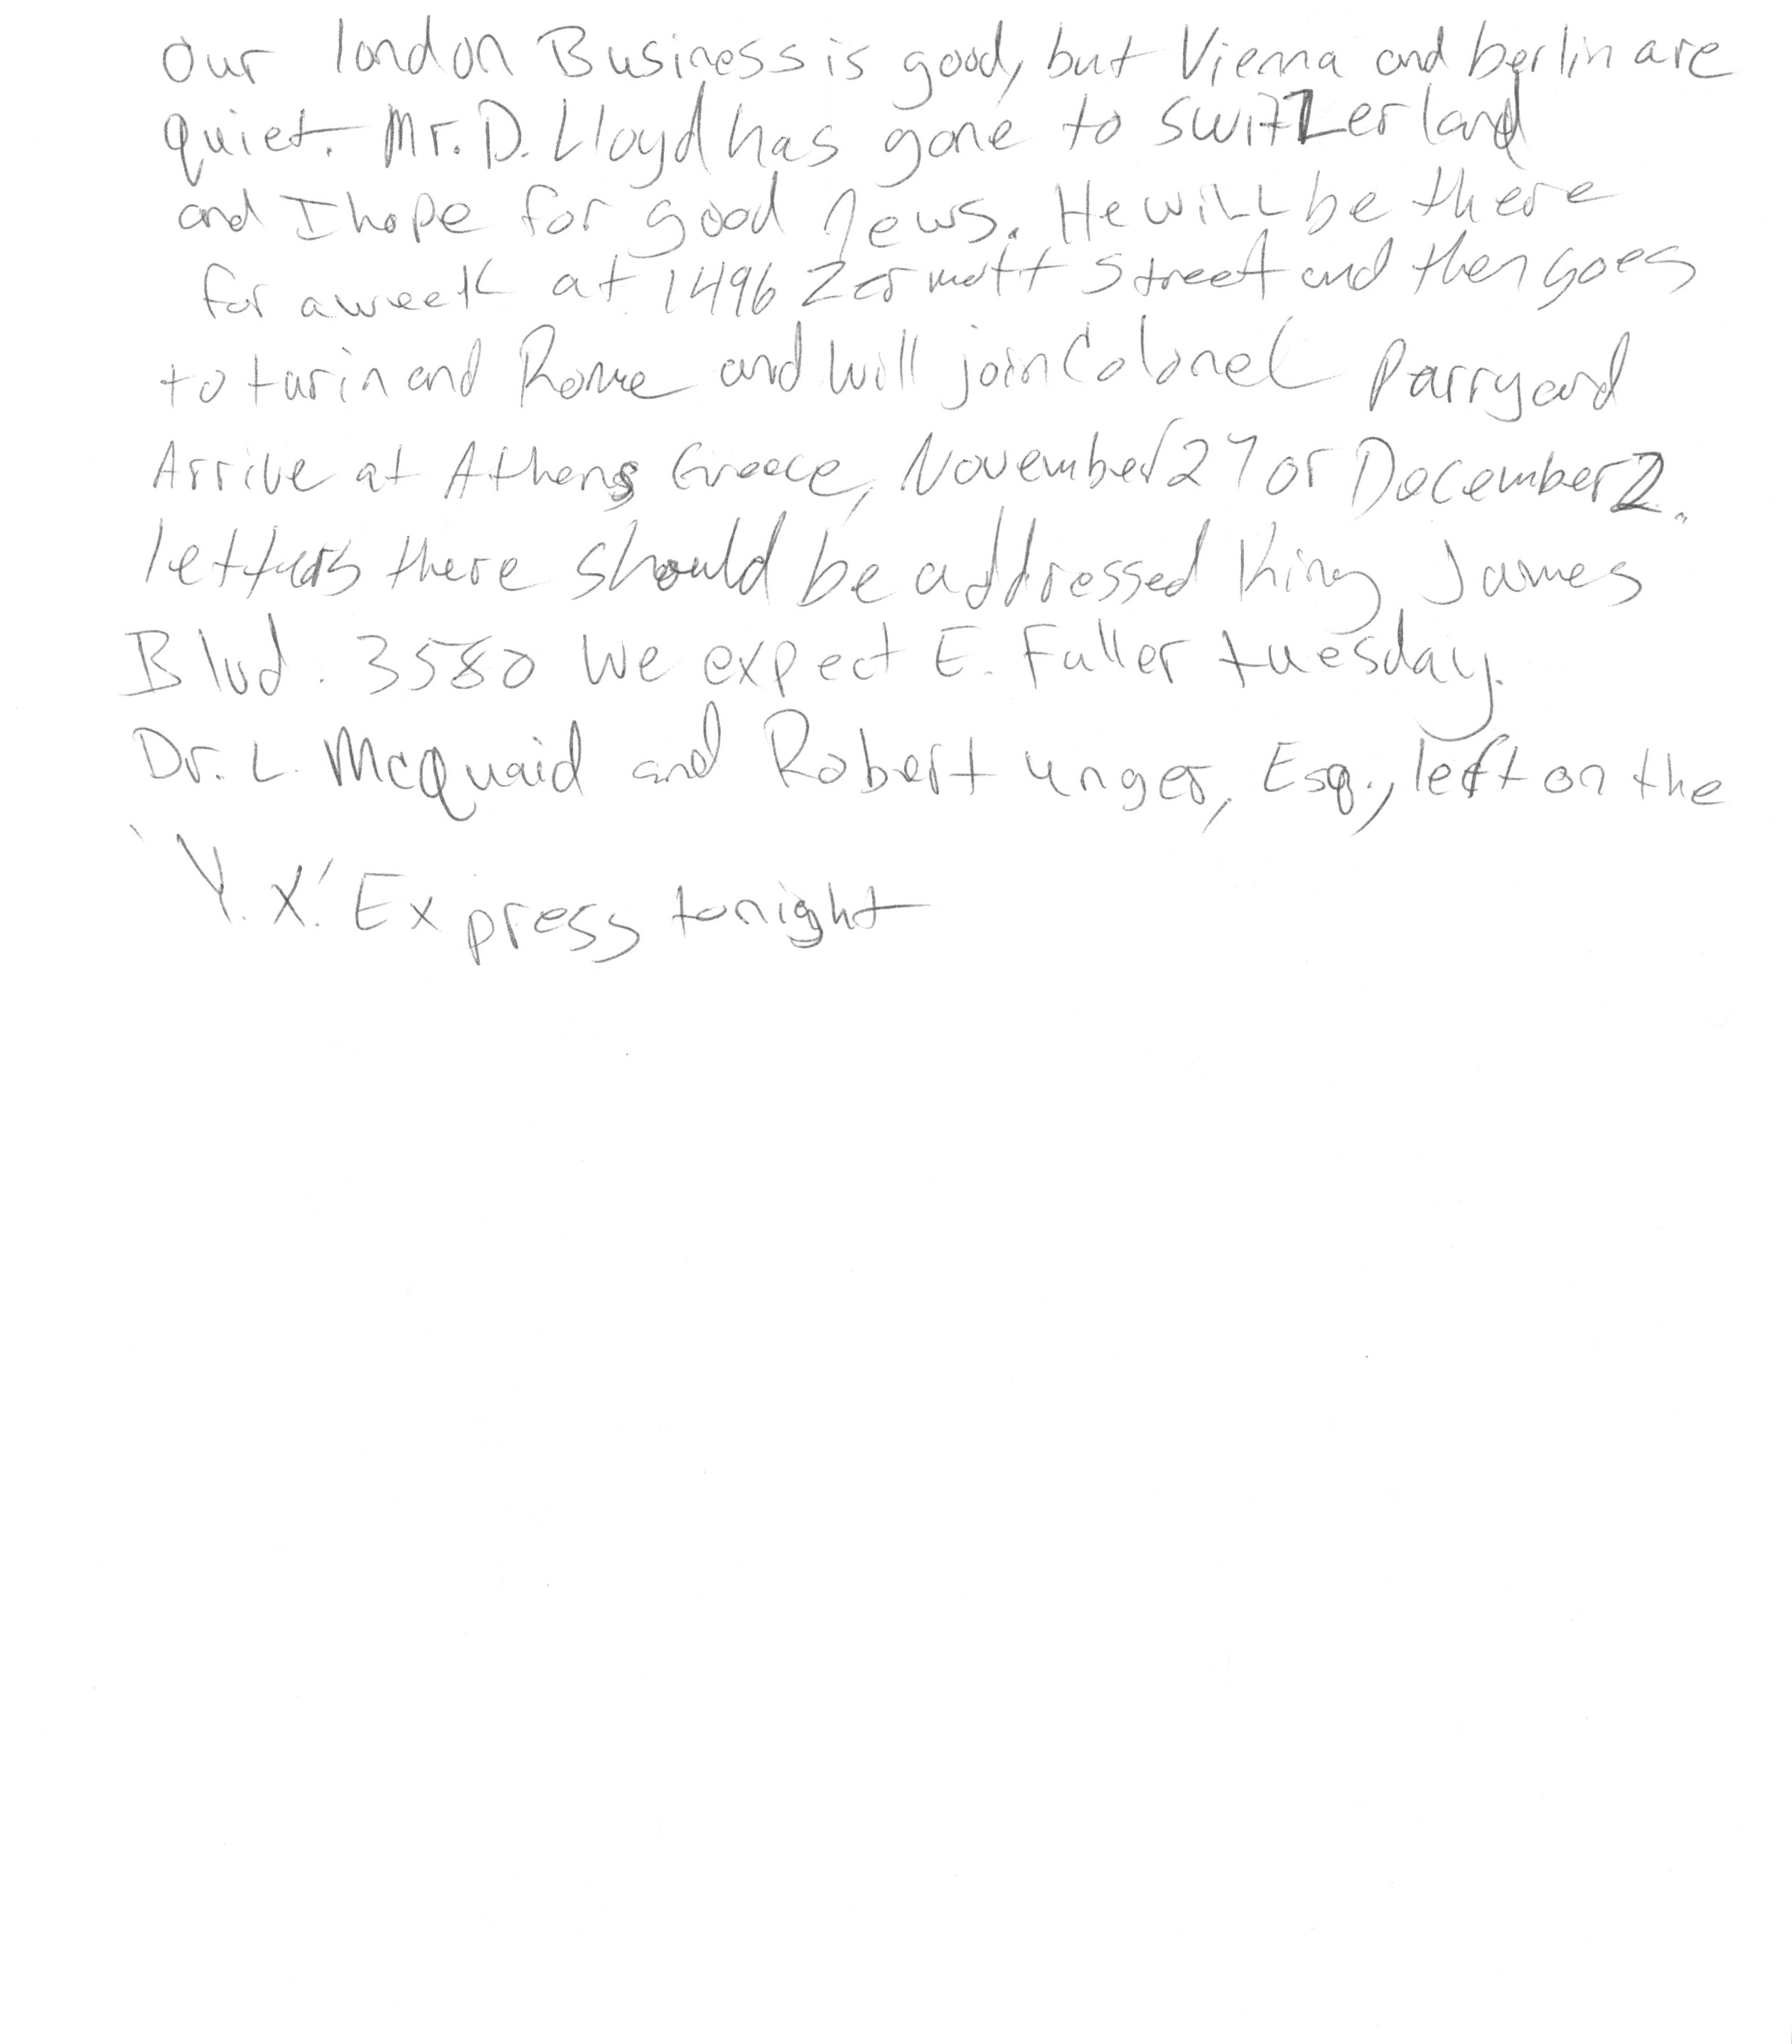 Our london Business is good, but Vienna and berlin are
quiet. Mr. D. Lloyd has gone to switzerland
and I hope for good news. He will be there
for a week at 1496 Zermott Street and then goes
to turin and Rome and will join Colonel Parry and
Arrive at Athens Greece, November 27 or December 2.
letters there should be addressed King James
Blvd. 3580 We expect E. Fuller tuesday.
Dr. L. McQuaid and Robert unger, Esq., left on the
"Y.X." Express tonight